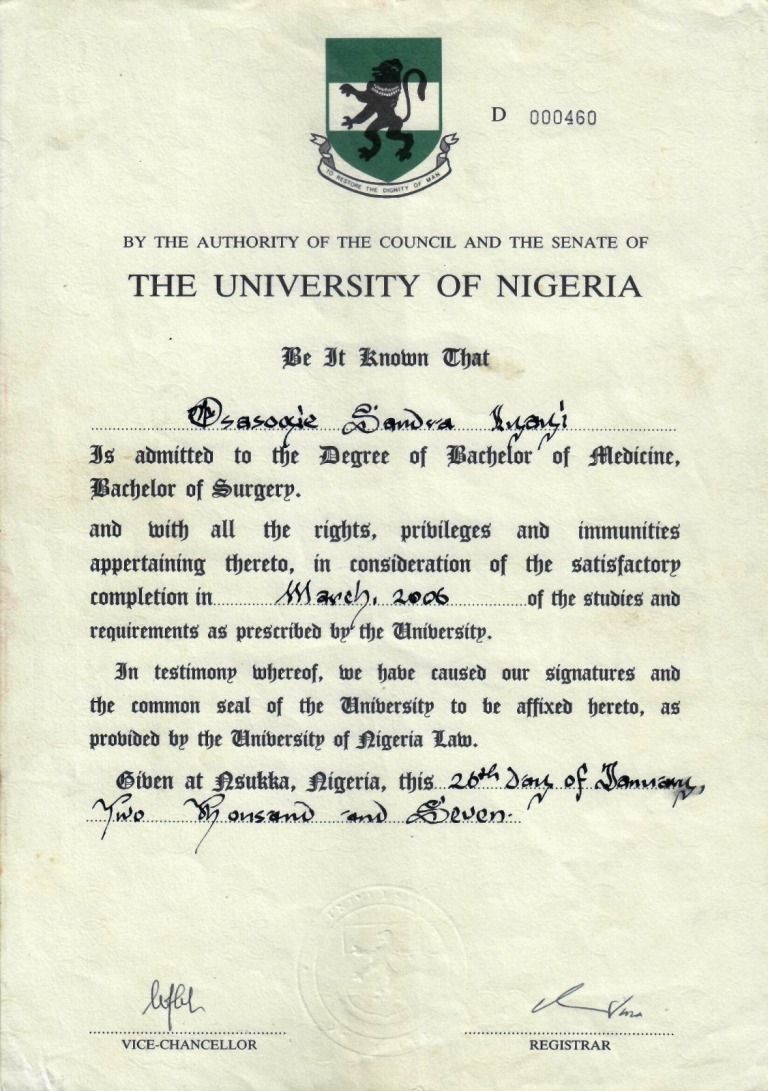 D 000460
TO RESTORE THE DIGNITY OF MAN
BY THE AUTHORITY OF THE COUNCIL AND THE SENATE OF
THE UNIVERSITY OF NIGERIA
Be It Known That
Osasogie Sandra Inyayi
Is admitted to the Degree of Bachelor of Medicine,
Bachelor of Surgery.
and with all the rights, privileges and immunities
appertaining thereto, in consideration of the satisfactory
completion in March, 2006 of the studies and
requirements as prescribed by the University.
In testimony whereof, we have caused our signatures and
the common seal of the University to be affixed hereto, as
provided by the University of Nigeria Law.
Given at Nsukka, Nigeria, this 26th Day of January,
Two Thousand and Seven.
VICE-CHANCELLOR
REGISTRAR